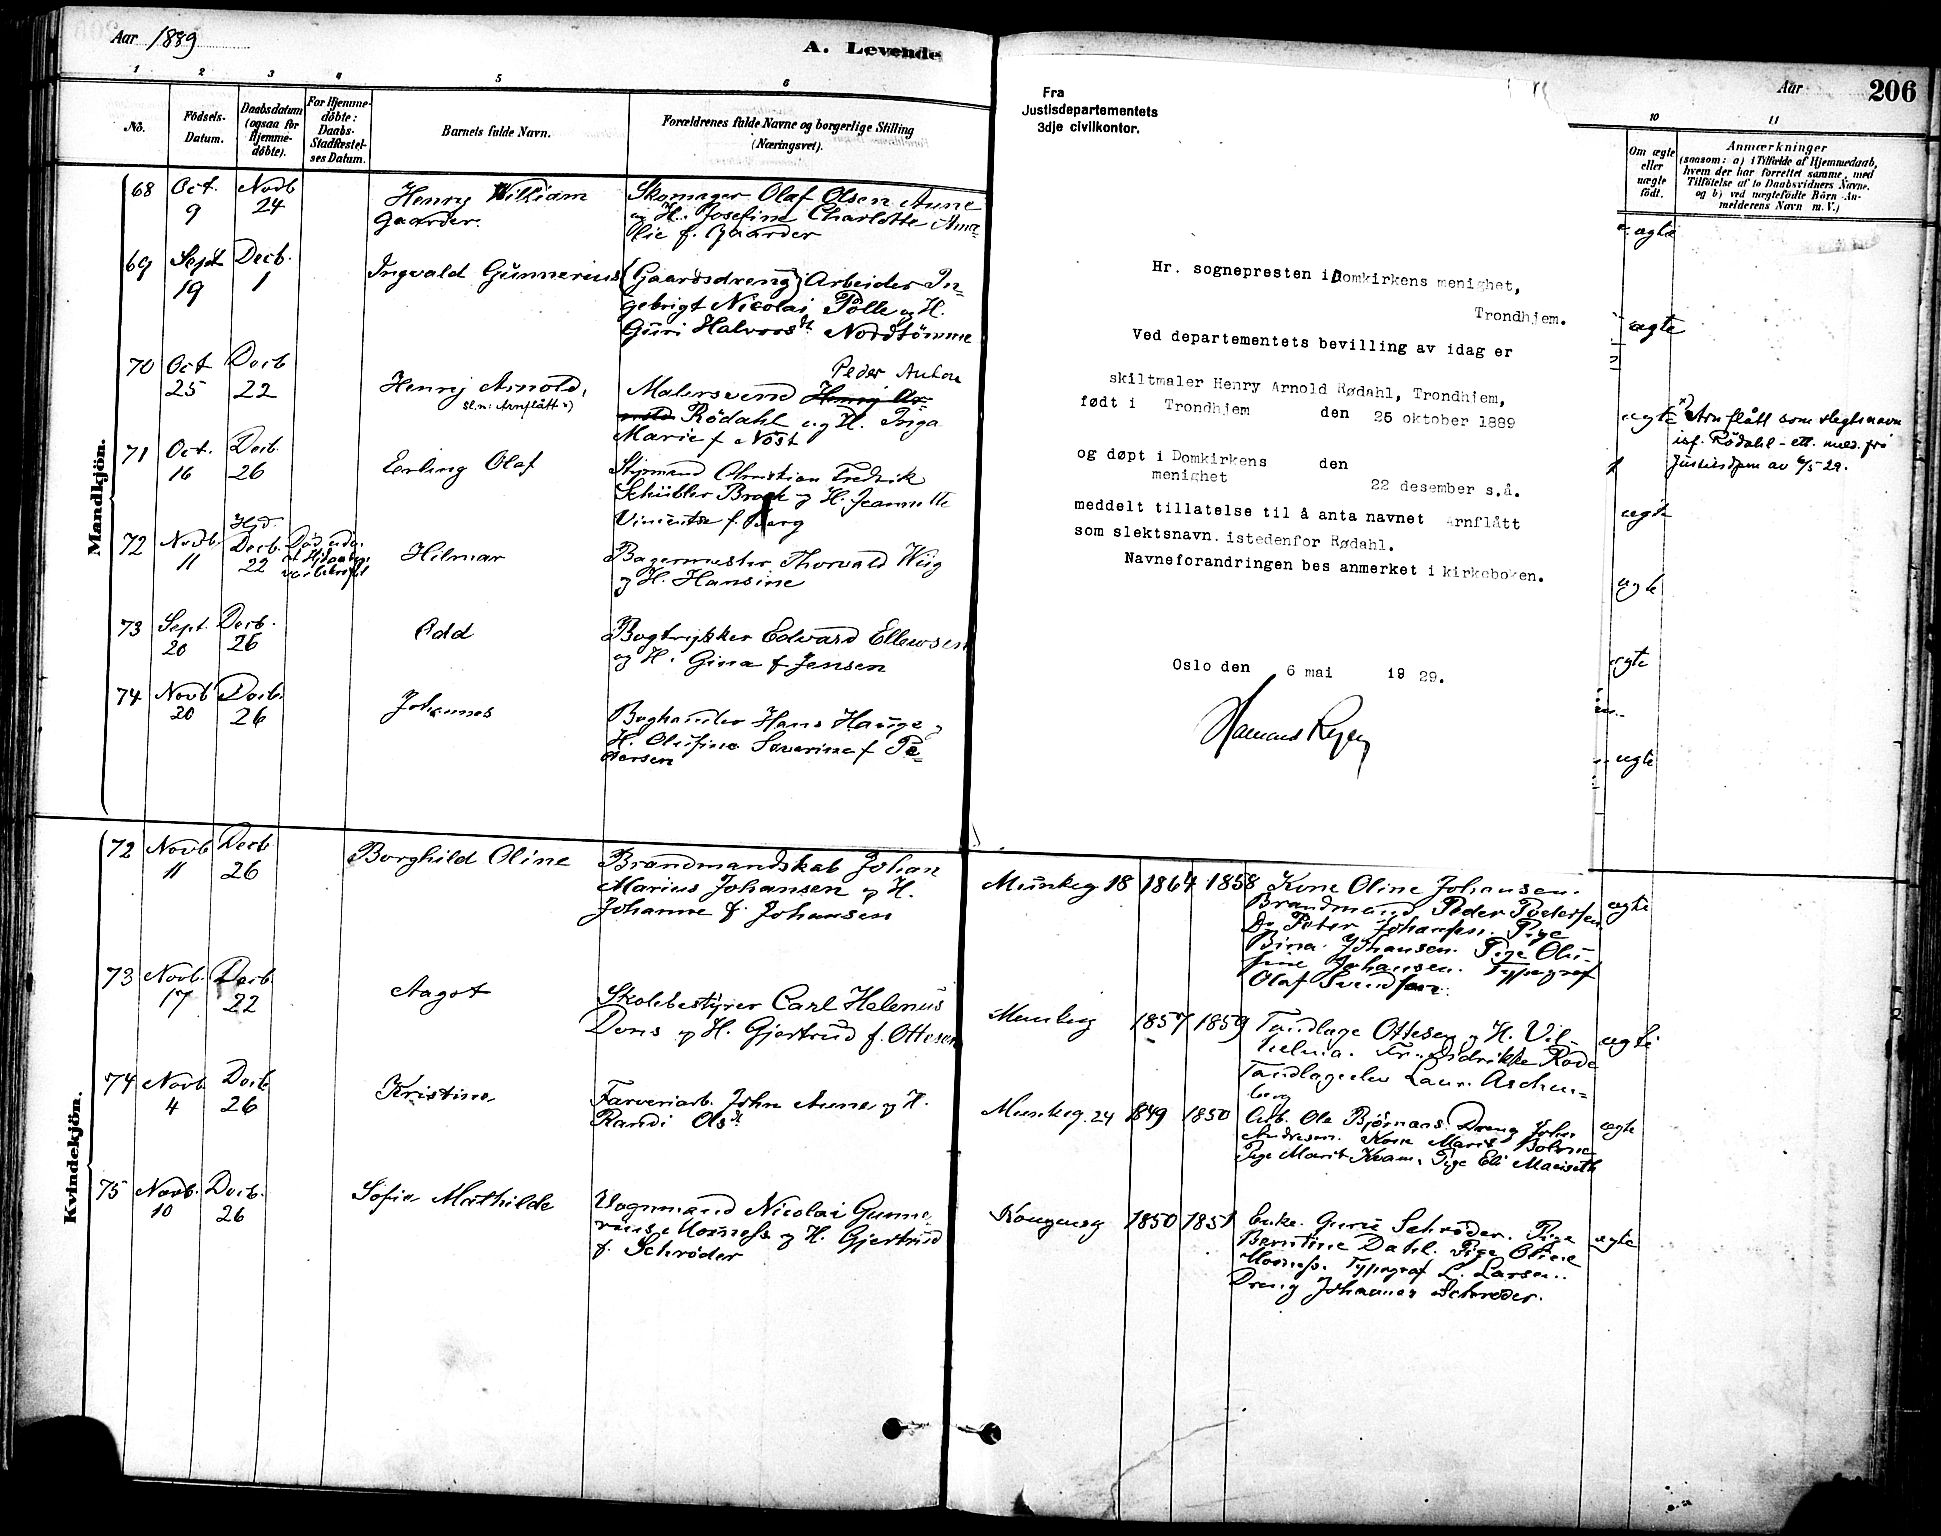 Aar 1889
A. Levende
1 2 3 4 5 6
No.
Fødsels-
Datum.
Daabsdatum
(ogsaa for
Hjemme-
døbte).
For Hjemme-
døbte:
Daabs-
Stadfæstel-
ses Datum.
Barnets fulde Navn.
Forældrenes fulde Navne og borgerlige Stilling
(Næringsvei).
Mandkjön.
68 Oct. 9 Novb 24
Henry William
Gaarder.
Skomager Olaf Olsen Aune
og H. Josefine Charlotte Ama-
lie f. Gaarder
69 Sept 19 Decb. 1
Ingvald Gunnerius
(Gaardsdreng) Arbeider In-
gebrigt Nicolai Polle og H.
Guri Halvorsdt. Nordtømme
70 Oct 25 Decb 22
Henry Arnold,
sl.n: Arnflått x)
Peder Anton
Malersvend Henry Ar-
nold Rödahl og H. Inga
Marie f Nöst
71 Oct. 16 Decb. 26
Erling Olaf
Styrmand Christian Fredrik
Schübler Brock og H. Jeannette
Vincentse f. Berg
72 Novb. 11 Hjd. Decb. 22
Hilmar
Bagermester Thorvald Wiig
og H. Hansine
73 Sept. 20 Decb. 26
Odd
Bogtrykker Edvard Ellewsen
og H. Gina f Jensen
74 Novb 20 Decb. 26
Johannes
Boghandler Hans Hauge og
H. Olufine Severine f Pe-
dersen
Kvindekjön.
72 Novb 11 Decb 26
Borghild Oline
Brandmandskab Johan
Marius Johansen og H.
Johanne f. Johansen
73 Novb. 17 Decb. 22
Aagot
Skolebestyrer Carl Helenus
Dons og H. Gjertrud f. Ottesen
74 Novb 4 Decb 26
Kristine
Farveriarb. John Aune og H.
Randi Olsdt
75 Novb. 10 Decb. 26
Sofie Mathilde
Vognmand Nicolai Gunne-
rius Mosness og H. Gjertrud
f. Schrøder
Fra
Justisdepartementets
3dje civilkontor.
Hr. sognepresten i Domkirkens menighet,
Trondhjem.
Ved departementets bevilling av idag er
skiltmaler Henry Arnold Rødahl, Trondhjem,
født i Trondhjem den 25 oktober 1889
og døpt i Domkirkens den
menighet 22 desember s.å.
meddelt tillatelse til å anta navnet Arnflått
som slektsnavn. istedenfor Rødahl.
Navneforandringen bes anmerket i kirkeboken.
Oslo den 6 mai 19 29.
Aar 206
10 11
Om ægte
eller
uægte
født.
Anmærkninger
(saasom: a) i Tilfælde af Hjemmedaab,
hvem der har forrettet samme, med
Tilføielse af to Daabsvidners Navne.
og b) ved uægtefødte Börn An-
melderens Navn m. V.)
ægte
ægte
ægte
x) Arnflått som slegtsnavn
isf. Rödahl - ett. med. frå
Justisdpm av 6/5 29.
ægte
ægte
ægte
ægte
Munkeg 18 1864 1858
Kone Oline Johansen.
Brandmand Peder Pedersen
Do Peter Johansen. Pige
Bina Johansen. Pige Olu-
fine Johansen. Typograf
Olaf Svendsen.
ægte
Munkeg 1857 1859
Tandlæge Ottesen og H. Vil-
helmia. Fr. Didrikke Rode
Tandlægeelev Laur. Aschen-
berg
ægte
Munkeg. 24 1849 1850
Arb. Ole Björnaas. Dreng John
Andresen. Kone Marit Bolme
Pige Marit Kvam. Pige Eli
ægte
Kongensg 1850 1851
Enke Gurie Schrøder. Pige
Berntine Dahl. Pige Oline
Mosness. Typograf L. Larsen.
Dreng Johannes Schrøder.
ægte